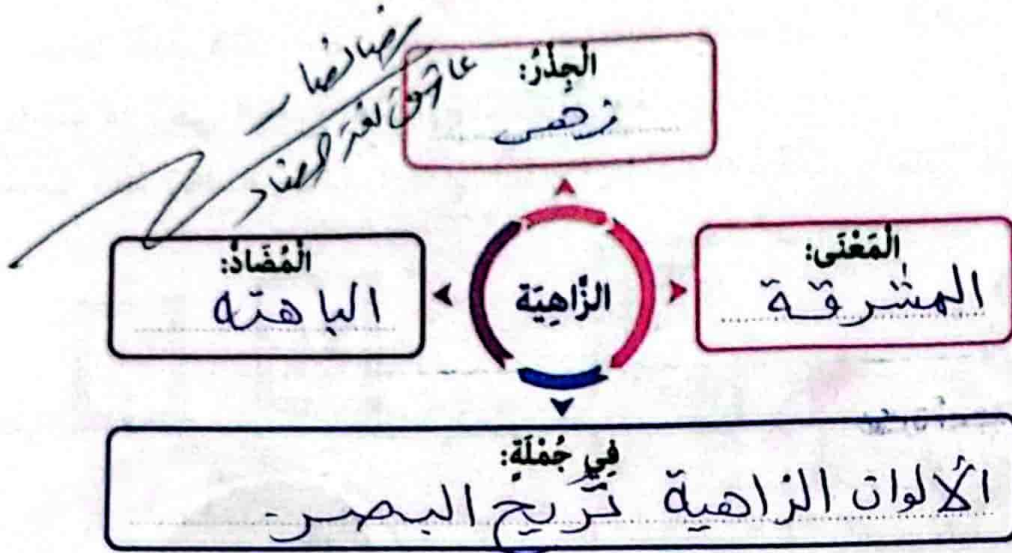 عاشق لغة الضاد
الْجِذْرُ:
الْمَعْنَى:
المشرقة
الزَّاهِيَة
الْمُضَادُّ:
الباهته
فِي جُمْلَةٍ:
الألوان الزاهية تُريح البصر.